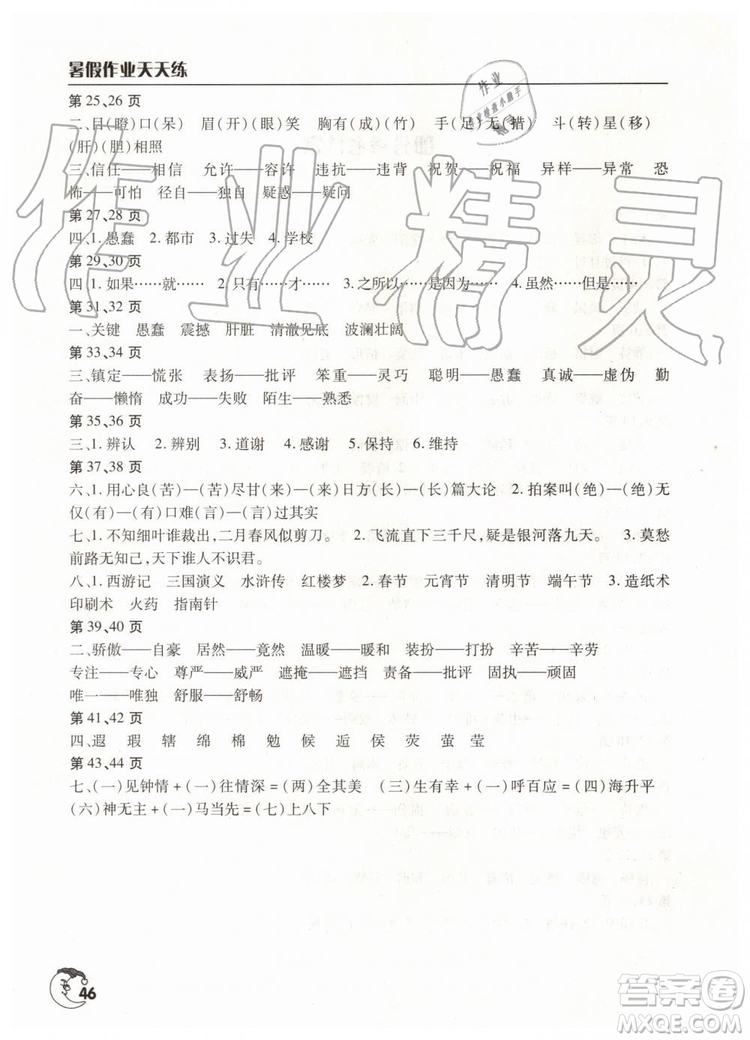 暑假作业天天练
第25、26页
二、目(瞪)口(呆)　眉(开)(眼)笑　胸有(成)(竹)　手(足)无(措)　斗(转)星(移)
(肝)(胆)相照
三、信任——相信　允许——容许　违抗——违背　祝贺——祝福　异样——异常　恐
怖——可怕　径自——独自　疑惑——疑问
第27、28页
四、1. 愚蠢　2. 都市　3. 过失　4. 学校
第29、30页
四、1. 如果……就……　2. 只有……才……　3. 之所以……是因为……　4. 虽然……但是……
第31、32页
一、关键　愚蠢　震撼　肝脏　清澈见底　波澜壮阔
第33、34页
三、镇定——慌张　表扬——批评　笨重——灵巧　聪明——愚蠢　真诚——虚伪　勤
奋——懒惰　成功——失败　陌生——熟悉
第35、36页
三、1. 辨认　2. 辨别　3. 道谢　4. 感谢　5. 保持　6. 维持
第37、38页
六、1. 用心良(苦)—(苦)尽甘(来)—(来)日方(长)—(长)篇大论　2. 拍案叫(绝)—(绝)无
仅(有)—(有)口难(言)—(言)过其实
七、1. 不知细叶谁裁出，二月春风似剪刀。　2. 飞流直下三千尺，疑是银河落九天。　3. 莫愁
前路无知己，天下谁人不识君。
八、1. 西游记　三国演义　水浒传　红楼梦　2. 春节　元宵节　清明节　端午节　3. 造纸术
印刷术　火药　指南针
第39、40页
二、骄傲——自豪　居然——竟然　温暖——暖和　装扮——打扮　辛苦——辛劳
专注——专心　尊严——威严　遮掩——遮挡　责备——批评　固执——顽固
唯一——唯独　舒服——舒畅
第41、42页
四、遐　瑕　辖　绵　棉　勉　候　逅　侯　荧　萤　莹
第43、44页
七、(一)见钟情+(一)往情深=(两)全其美　(三)生有幸+(一)呼百应=(四)海升平
(六)神无主+(一)马当先=(七)上八下
46
作业精灵
作业
答案圈
MXQE.COM